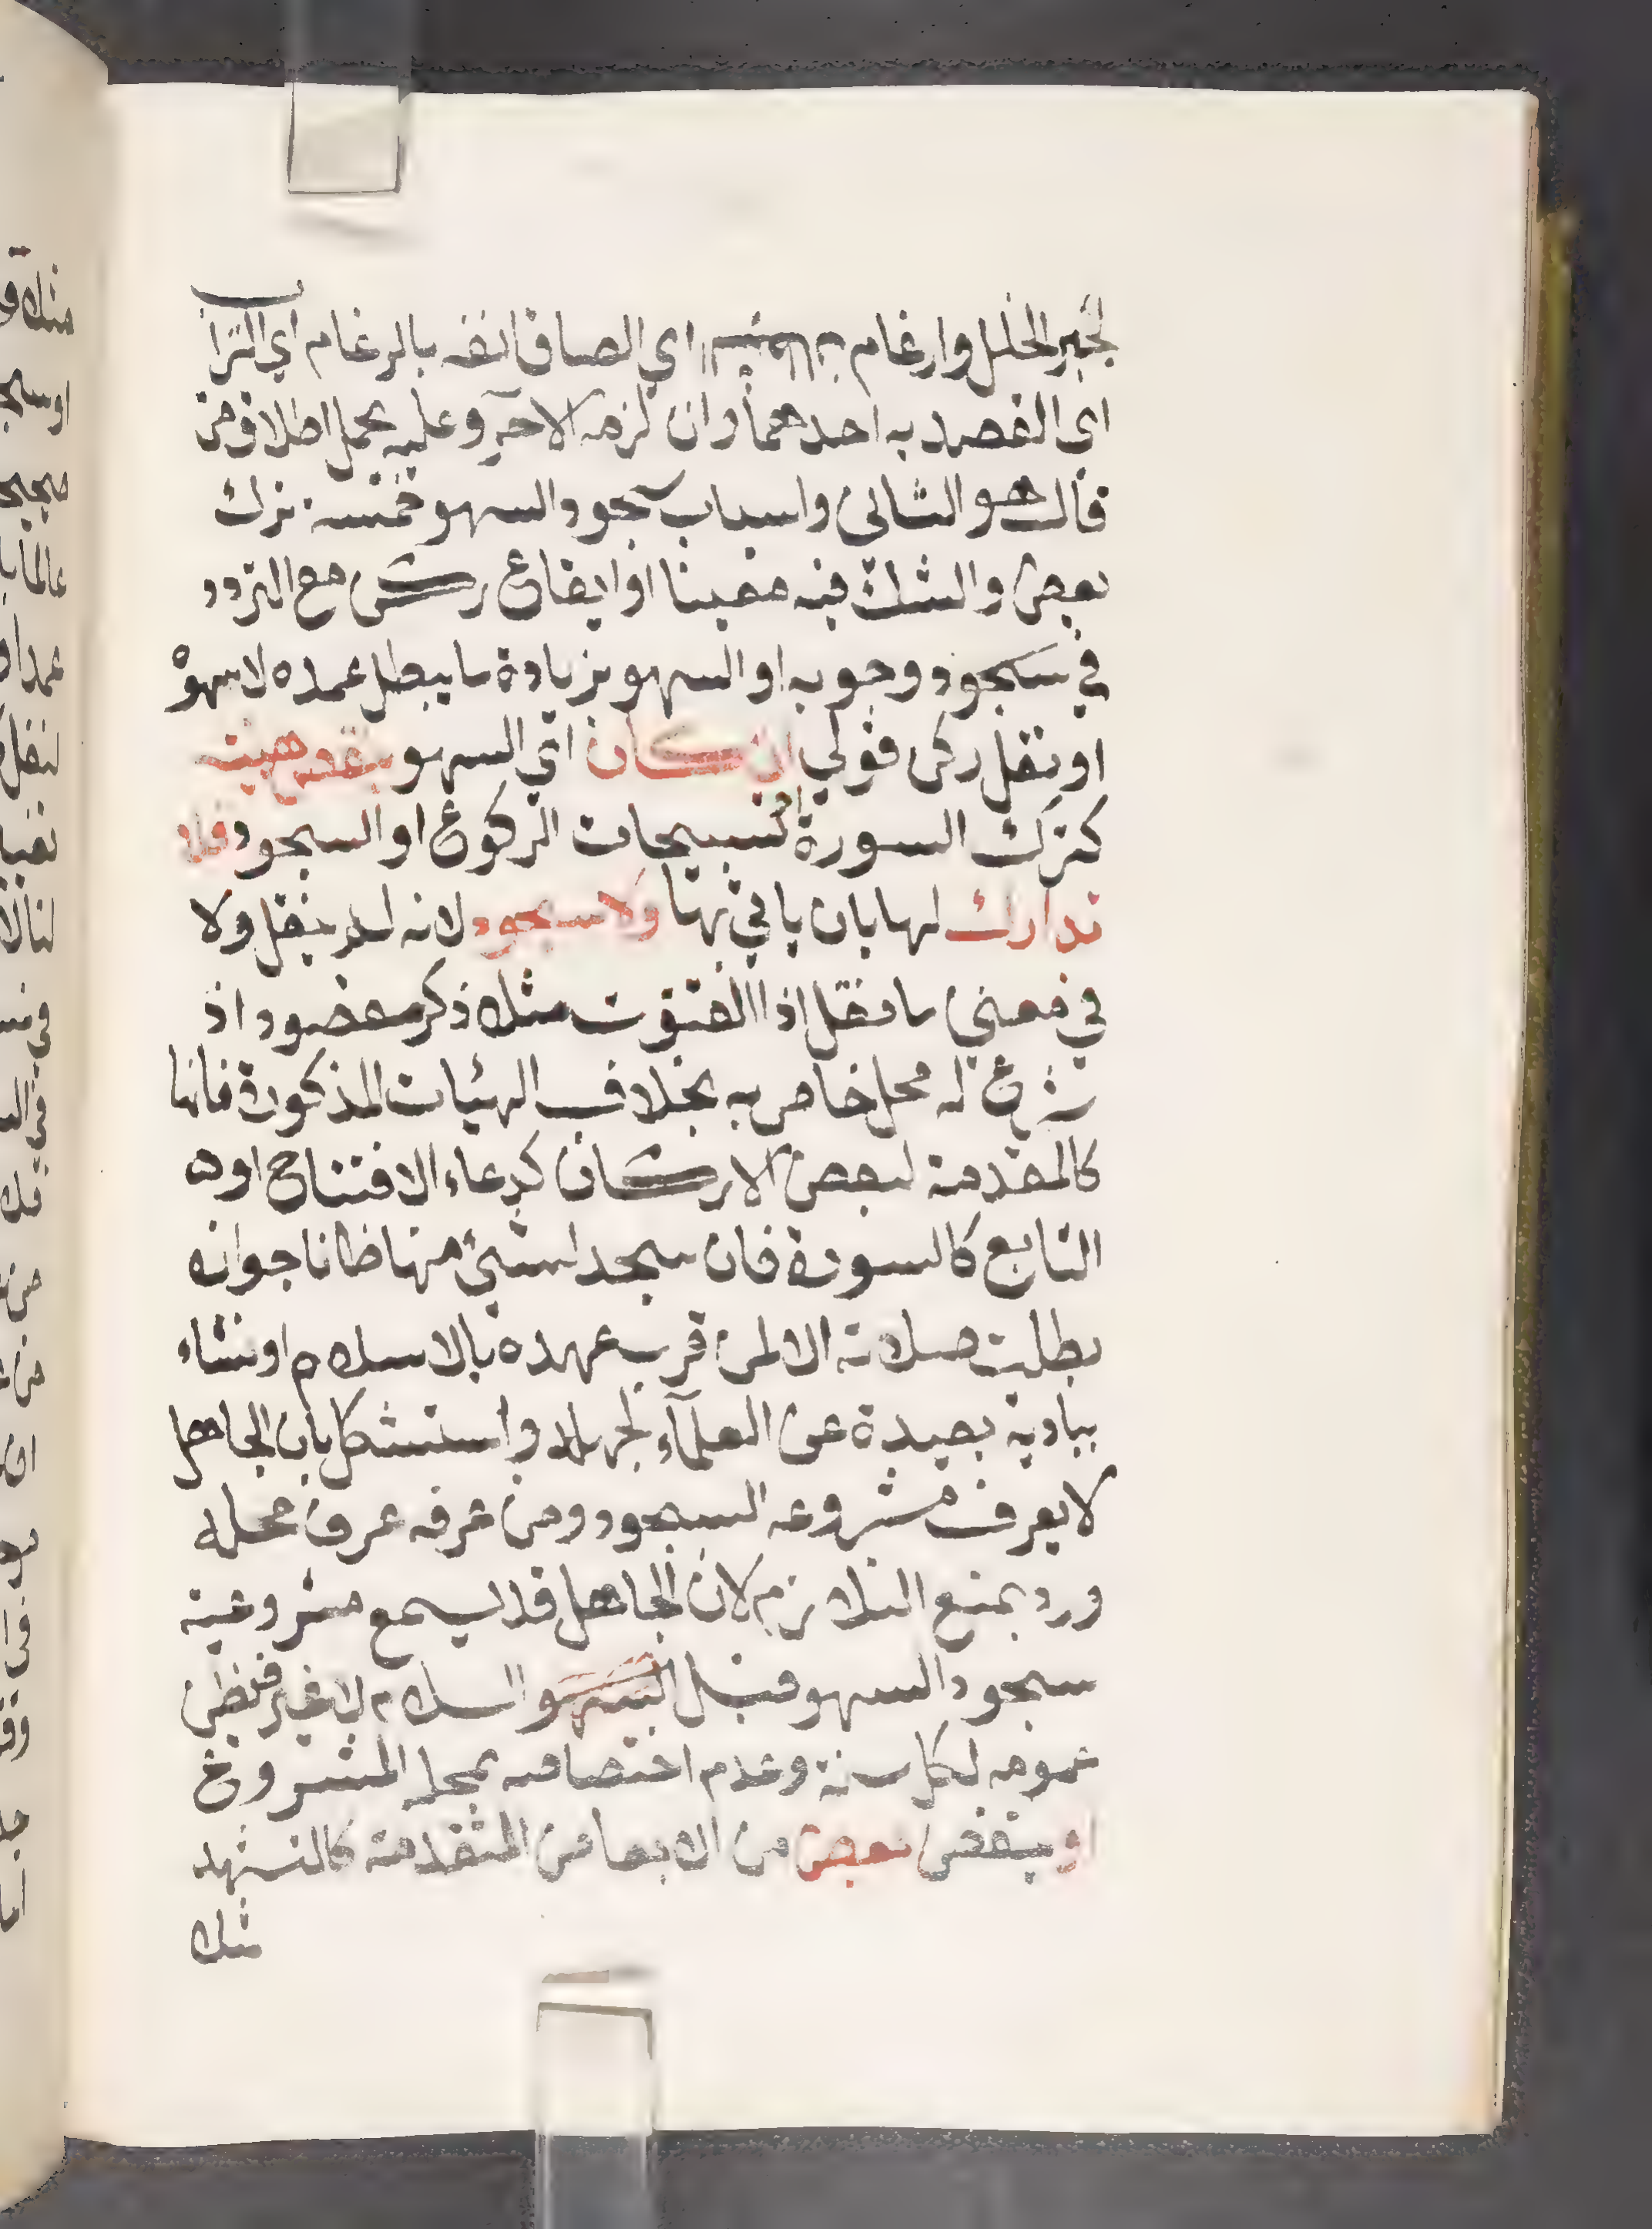 لجبر الخلل وارغام اي الصاق انفه بالرغام اي التراب
اى القصد به احدهما وان لزمه الاخر وعليه يحمل اطلاق من
قال هو الثانى واسباب سجود السهو خمسة ترك
بعض والشك فيه معينا او ايقاع ركن مع التردد
في سجود وجوبه او السهو بزيادة ما يبطل عمده لا سهوه
او نقل ركن قولي ان كان اي السهو بنقص هيئة
كترك السورة او تسبيحات الركوع او السجود فلا
تدارك لها بان ياتي بها ولا سجود لانه لم ينقل ولا
في معني ما نقل اذ القنوت مثلا ذكر مقصود اذ
شرع له محل خاص به بخلاف الهيئات المذكورة فانها
كالمقدمة لبعض الاركان كدعاء الافتتاح او
التابع كالسورة فان سجد لشئ منها ظانا جوازه
بطلت صلاته الا لمن قرب عهده بالاسلام او نشاء
ببادية بعيدة عن العلمآء لجهله واستشكل بان الجاهل
لا يعرف مشروعه السجود ومن عرفه عرف محله
ورد بمنع التلازم لان الجاهل قد يسمع مشروعية
سجود السهو قبل السلام لا غير فيظن
عمومه لكل سنة وعدم اختصاصه بمحله المشروع
او بنقص بعض من الابعاض المتقدمة كالتشهد
مثلا